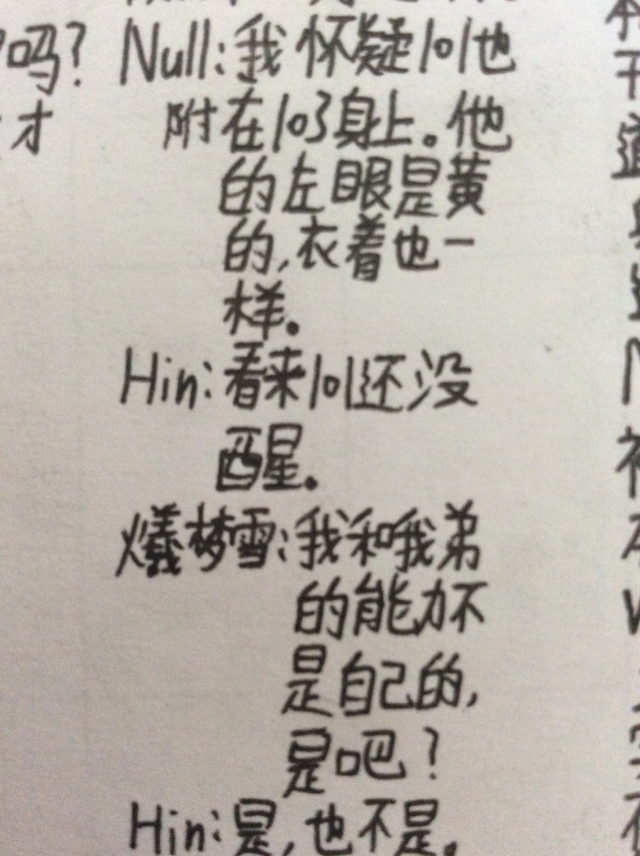 吗?
才
Null:我怀疑101也
附在103身上。他
的左眼是黄
的,衣着也一
样。
Hin:看来101还没
醒。
爔梦雪:我和我弟
的能力不
是自己的,
是吧?
Hin:是,也不是。